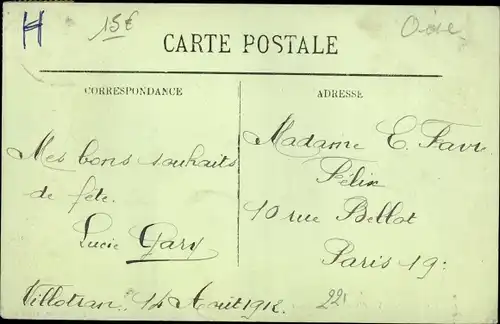 H 15€ Oise
CARTE POSTALE
CORRESPONDANCE
ADRESSE
Mes bons souhaits
de fête.
Lucie Gary
Madame E. Favre
Félix
10 rue Bellot
Paris 19:
Villotran, 14 Août 1912
221